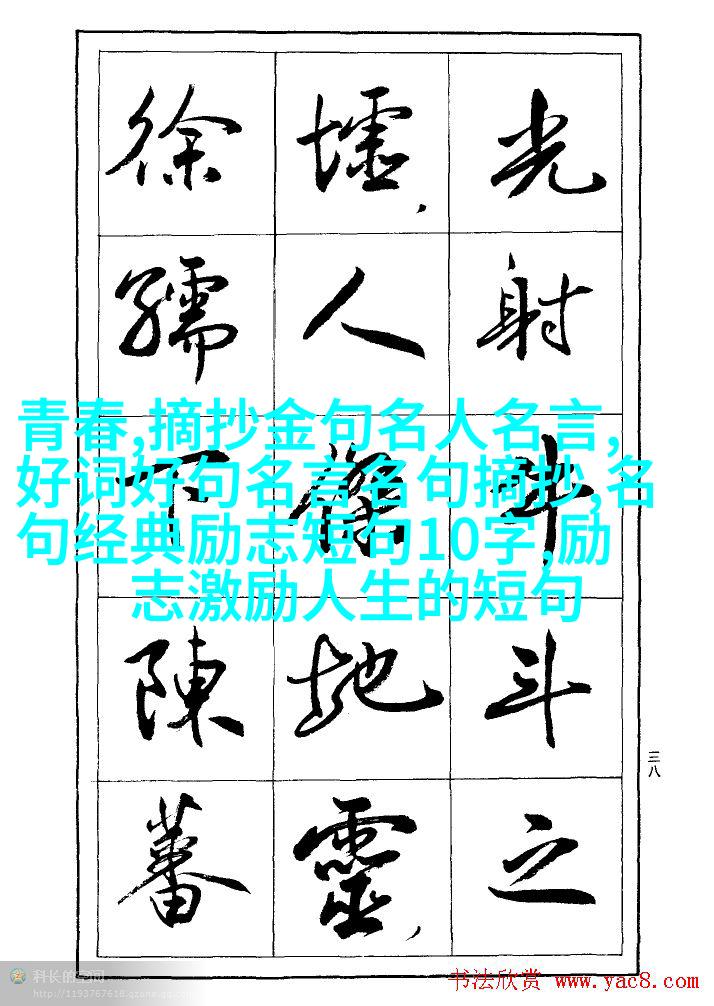 光射牛斗之
墟，人傑地靈，
徐孺下陳蕃
青春,摘抄金句名人名言,
好词好句名言名句摘抄,名
句经典励志短句10字,励
志激励人生的短句
三八
科长的空间
http://1193767618.qzone.qq.com
书法欣赏 www.yac8.com